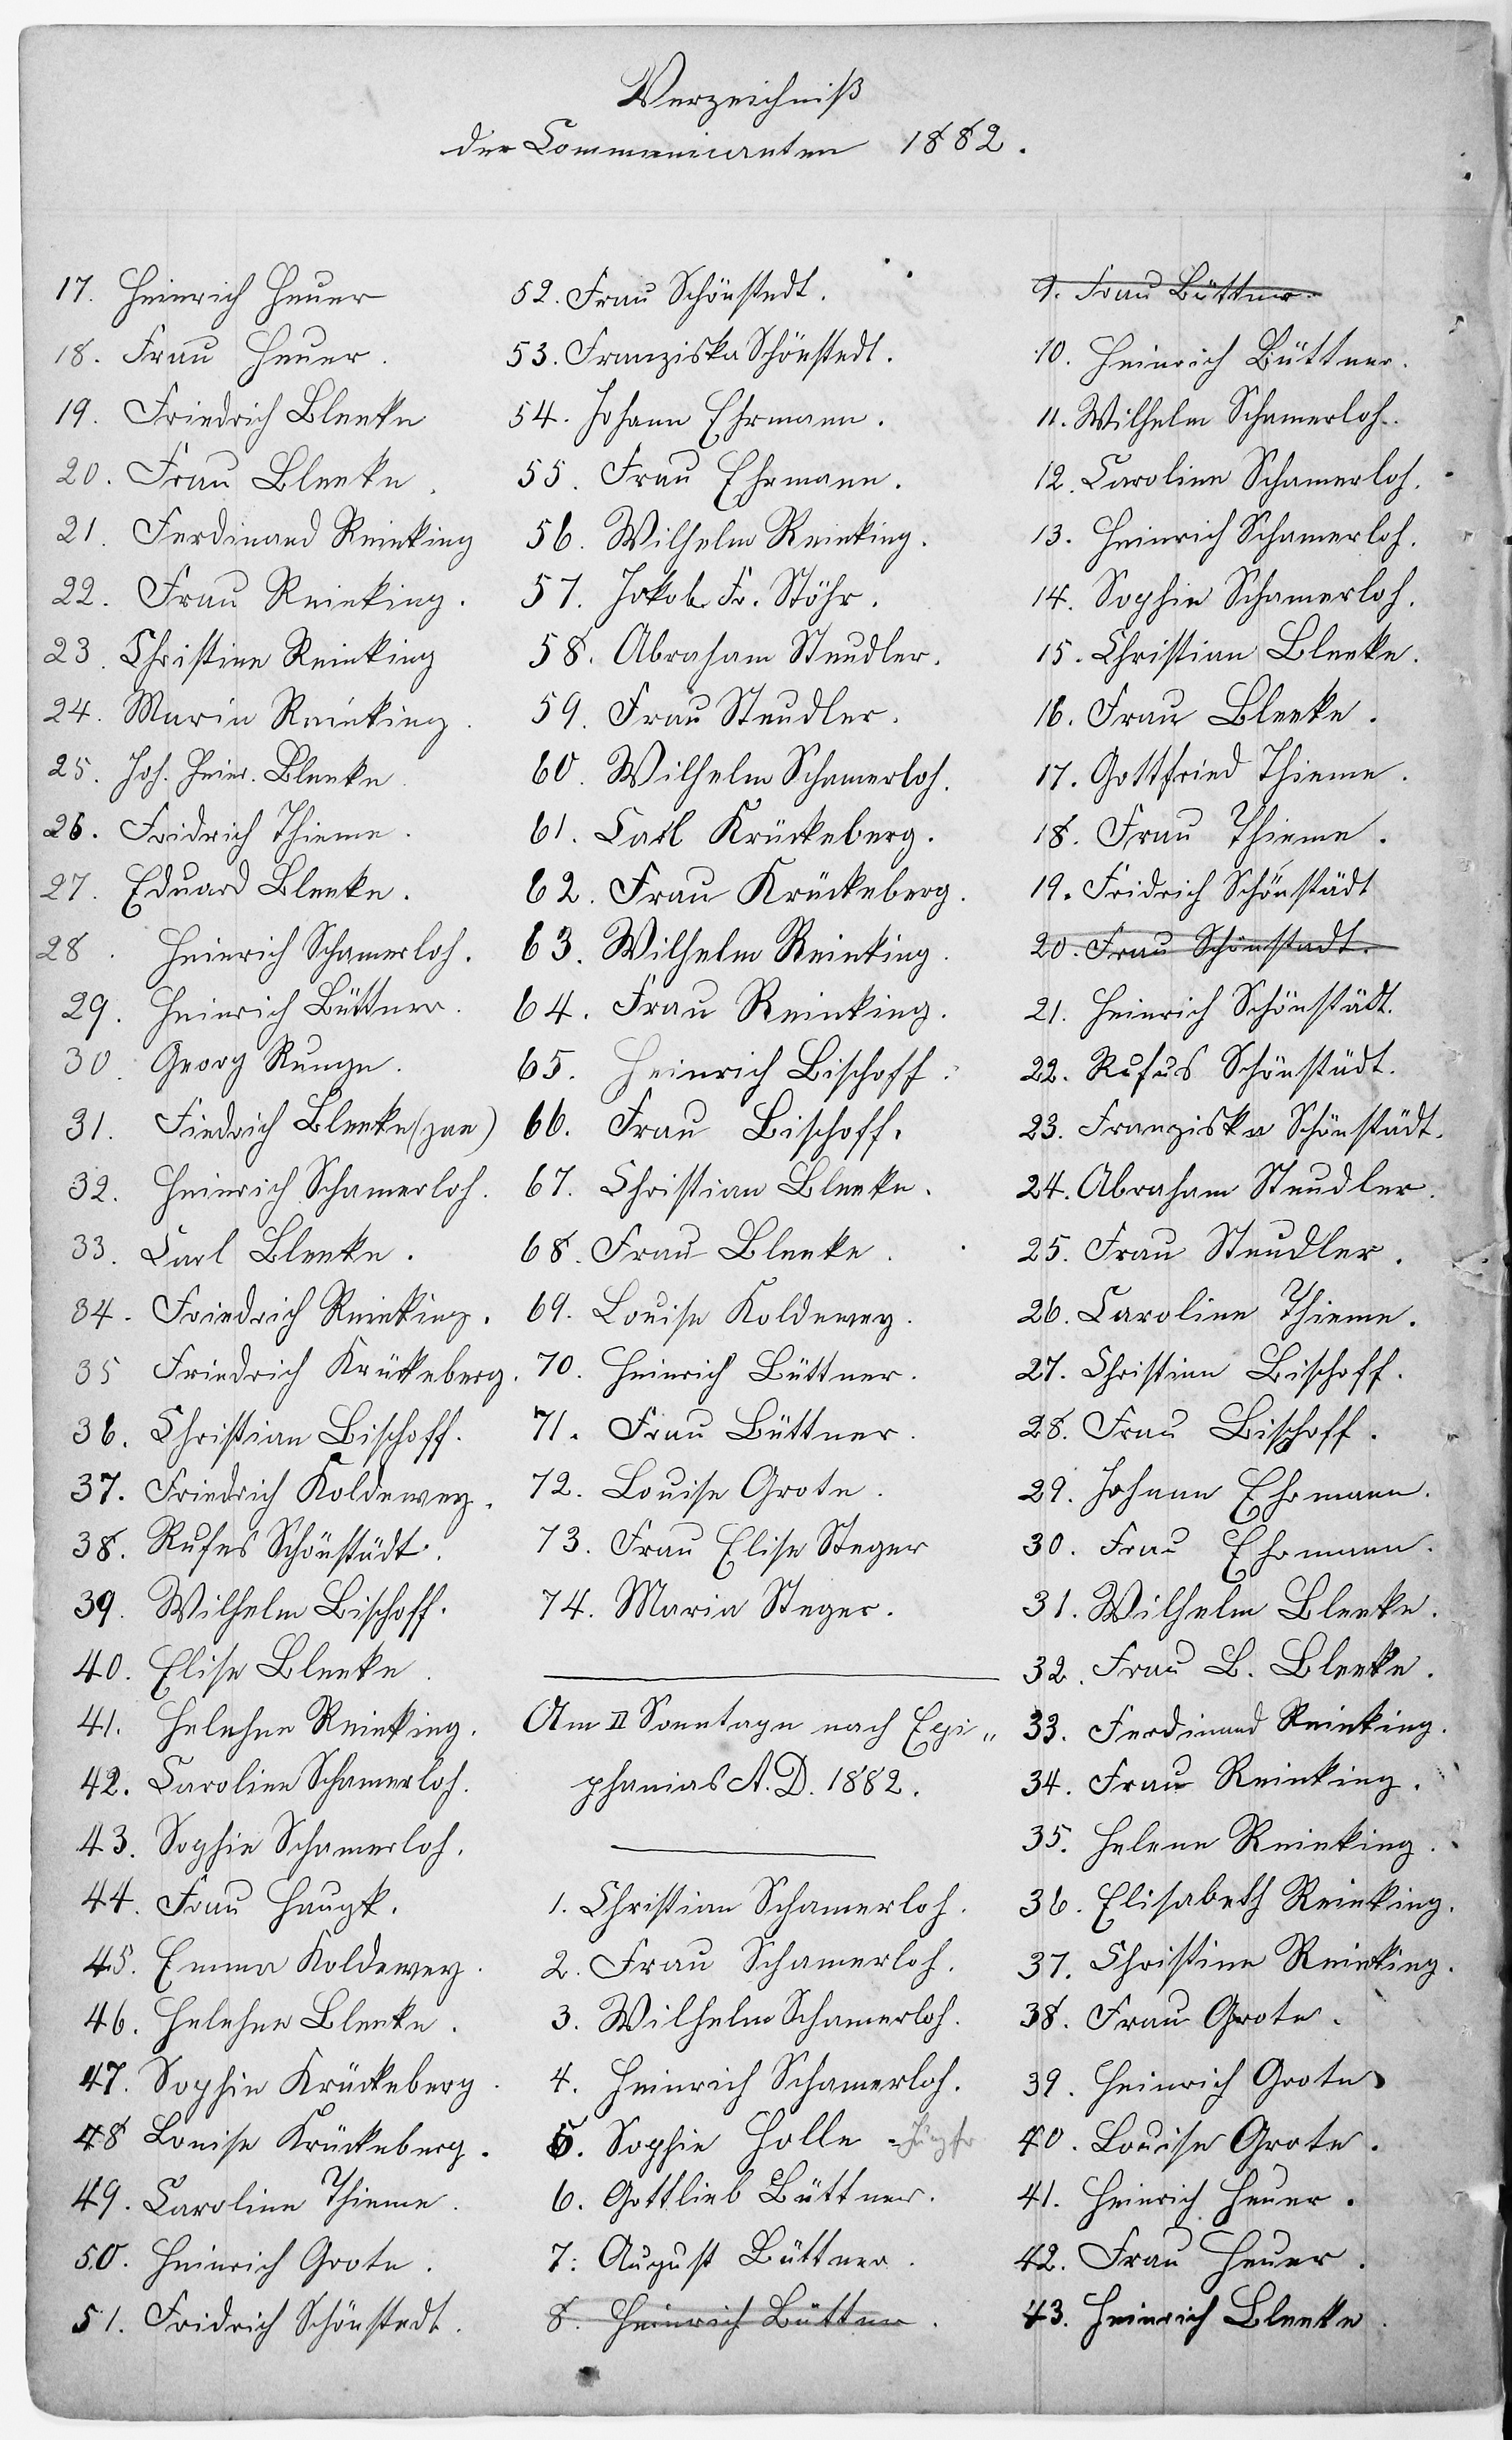 Verzeichniß
der Communicanten 1882.
17. Heinrich Heuer
18. Frau Heuer.
19. Friedrich Bleeke
20. Frau Bleeke.
21. Ferdinand Reinking
22. Frau Reinking.
23. Christine Reinking
24. Marie Reinking.
25. Joh. Heinr. Bleeke.
26. Fridrich Thieme.
27. Eduard Bleeke.
28. Heinrich Schamerloh.
29. Heinrich Büttner.
30. Georg Runge.
31. Fiedrich Bleeke (zae)
32. Heinrich Schamerloh.
33. Carl Bleeke.
34. Friedrich Reinking.
35 Friedrich Krükeberg.
36. Christian Bischoff.
37. Friedrich Koldewey.
38. Rufus Schönstädt.
39. Wilhelm Bischoff.
40. Elise Bleeke.
41. Helehne Reinking.
42. Caroline Schamerloh.
43. Sophie Schamerloh.
44. Frau Haugk.
45. Emma Koldewey.
46. Helehne Bleeke.
47. Sophie Krückeberg.
48 Louise Krückeberg.
49. Caroline Thieme.
50. Heinrich Grote.
51. Fridrich Schönstedt.
52. Frau Schönstedt.
53. Franziska Schönstedt.
54. Johann Ehrmann.
55. Frau Ehrmann.
56. Wilhelm Reinking.
57. Jakob Fr. Stöhr.
58. Abraham Steudler.
59. Frau Steudler.
60. Wilhelm Schamerloh.
61. Carl Krückeberg.
62. Frau Krückeberg.
63. Wilhelm Reinking.
64. Frau Reinking.
65. Heinrich Bischoff.
66. Frau Bischoff.
67. Christian Bleeke.
68. Frau Bleeke.
69. Louise Koldewey.
70. Heinrich Büttner.
71. Frau Büttner.
72. Louise Grote.
73. Frau Elise Steger
74. Maria Steger.
Am II Sonntage nach Epi„
phanias A. D. 1882.
1. Christian Schamerloh.
2. Frau Schamerloh.
3. Wilhelm Schamerloh.
4. Heinrich Schamerloh.
5. Sophie Holle
6. Gottlieb Büttner.
7. August Büttner.
8. Heinrich Büttner.
9. Frau Büttner.
10. Heinrich Büttner.
11. Wilhelm Schamerloh.
12. Caroline Schamerloh.
13. Heinrich Schamerloh.
14. Sophie Schamerloh.
15. Christian Bleeke.
16. Frau Bleeke.
17. Gottfried Thieme.
18. Frau Thieme.
19. Fridrich Schönstädt
20. Frau Schönstadt.
21. Heinrich Schönstädt.
22. Rufus Schönstädt.
23. Franziska Schönstädt.
24. Abraham Steudler.
25. Frau Steudler.
26. Caroline Thieme.
27. Christian Bischoff.
28. Frau Bischoff.
29. Johann Ehrmann.
30. Frau Ehrmann.
31. Wilhelm Bleeke.
32. Frau B. Bleeke.
33. Ferdinand Reinking.
34. Frau Reinking.
35. Helene Reinking.
36. Elisabeth Reinking.
37. Christine Reinking.
38. Frau Grote.
39. Heinrich Grote
40. Louise Grote.
41. Heinrich Heuer.
42. Frau Heuer.
43. Heinrich Bleeke.